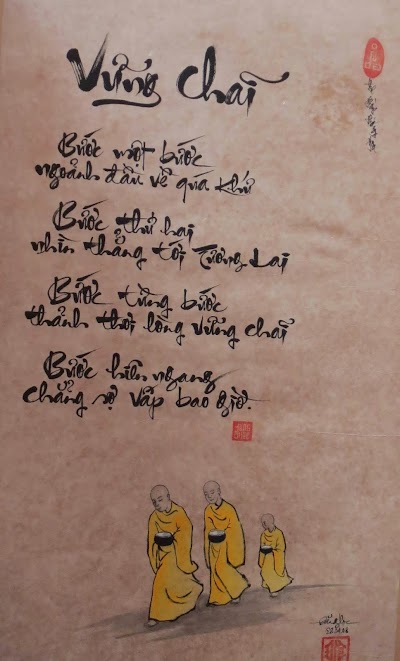 Vững chãi
Bước một bước
ngoảnh đầu về quá khứ
Bước thứ hai
nhìn thẳng tới Tương Lai
Bước từng bước
thảnh thơi lòng vững chãi
Bước hiên ngang
chẳng sợ vấp bao giờ.